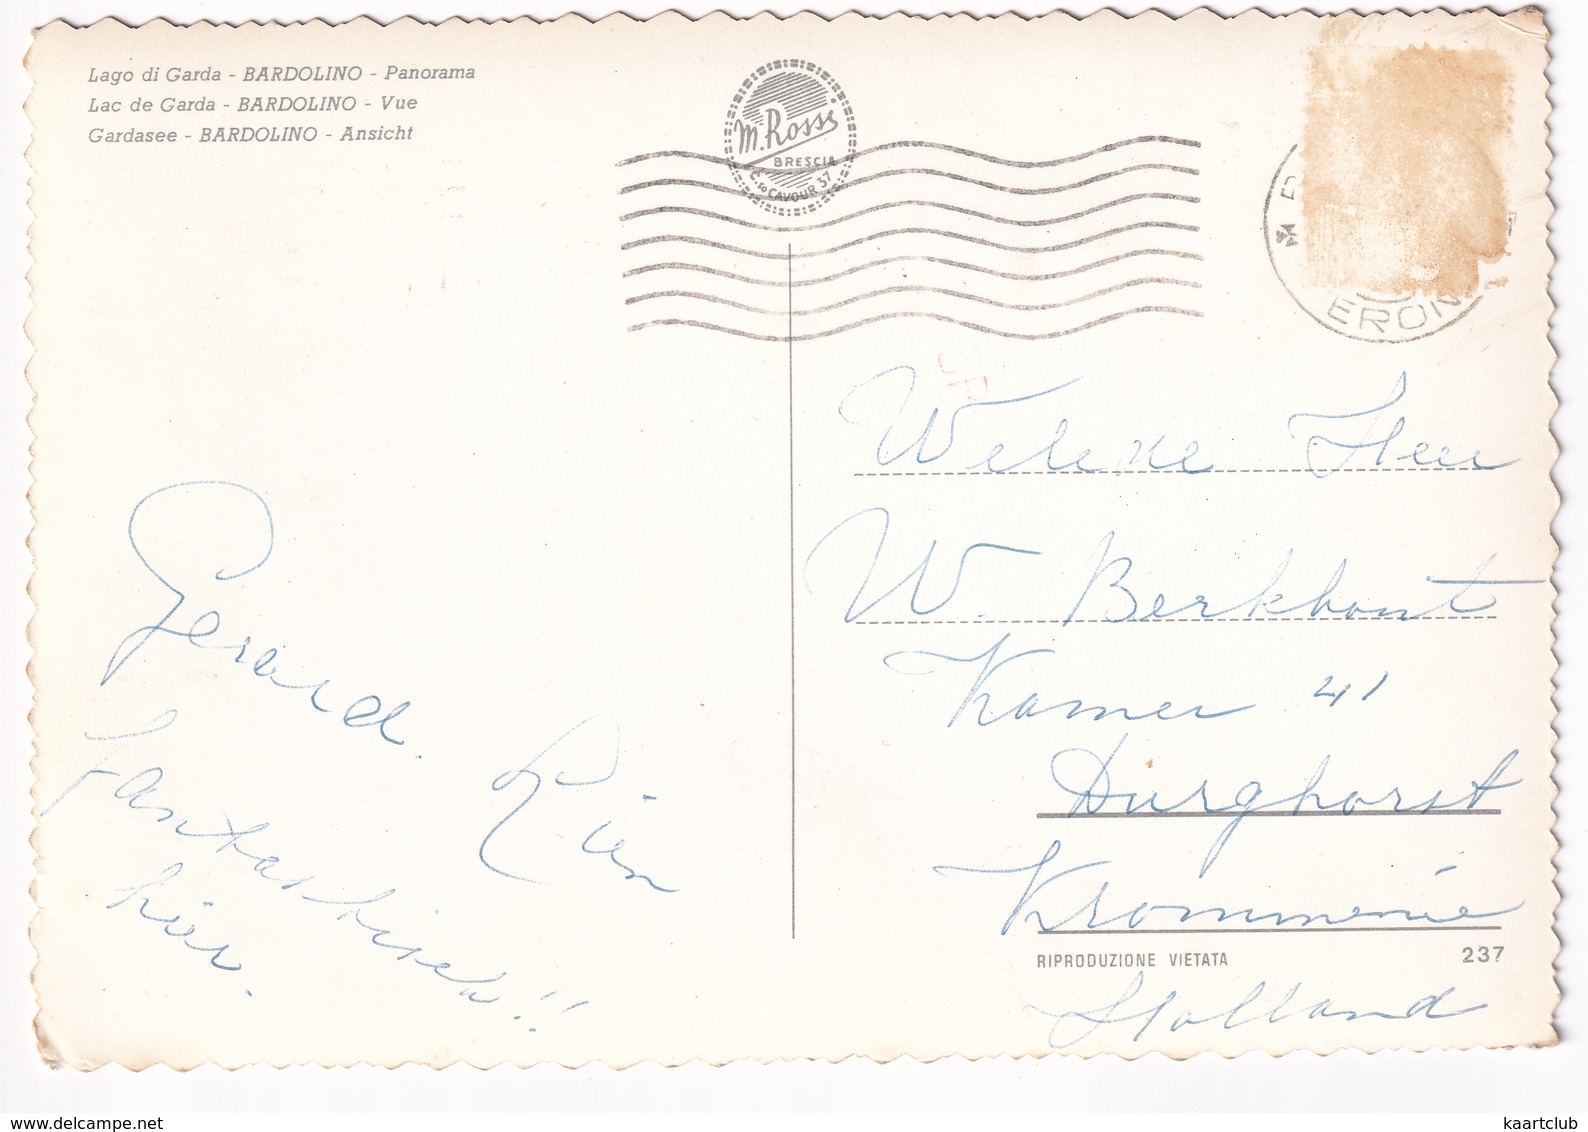 Lago di Garda - BARDOLINO - Panorama
Lac de Garda - BARDOLINO - Vue
Gardasee - BARDOLINO - Ansicht
M. Rossi
BRESCIA
C.so CAVOUR 37
ERON
Gerard. Rien
Fantastisch!!
hier.
Heer
W. Berkhout
Kamer 41
Durghorst
Krommenie
RIPRODUZIONE VIETATA 237
Holland
www.delcampe.net
kaartclub